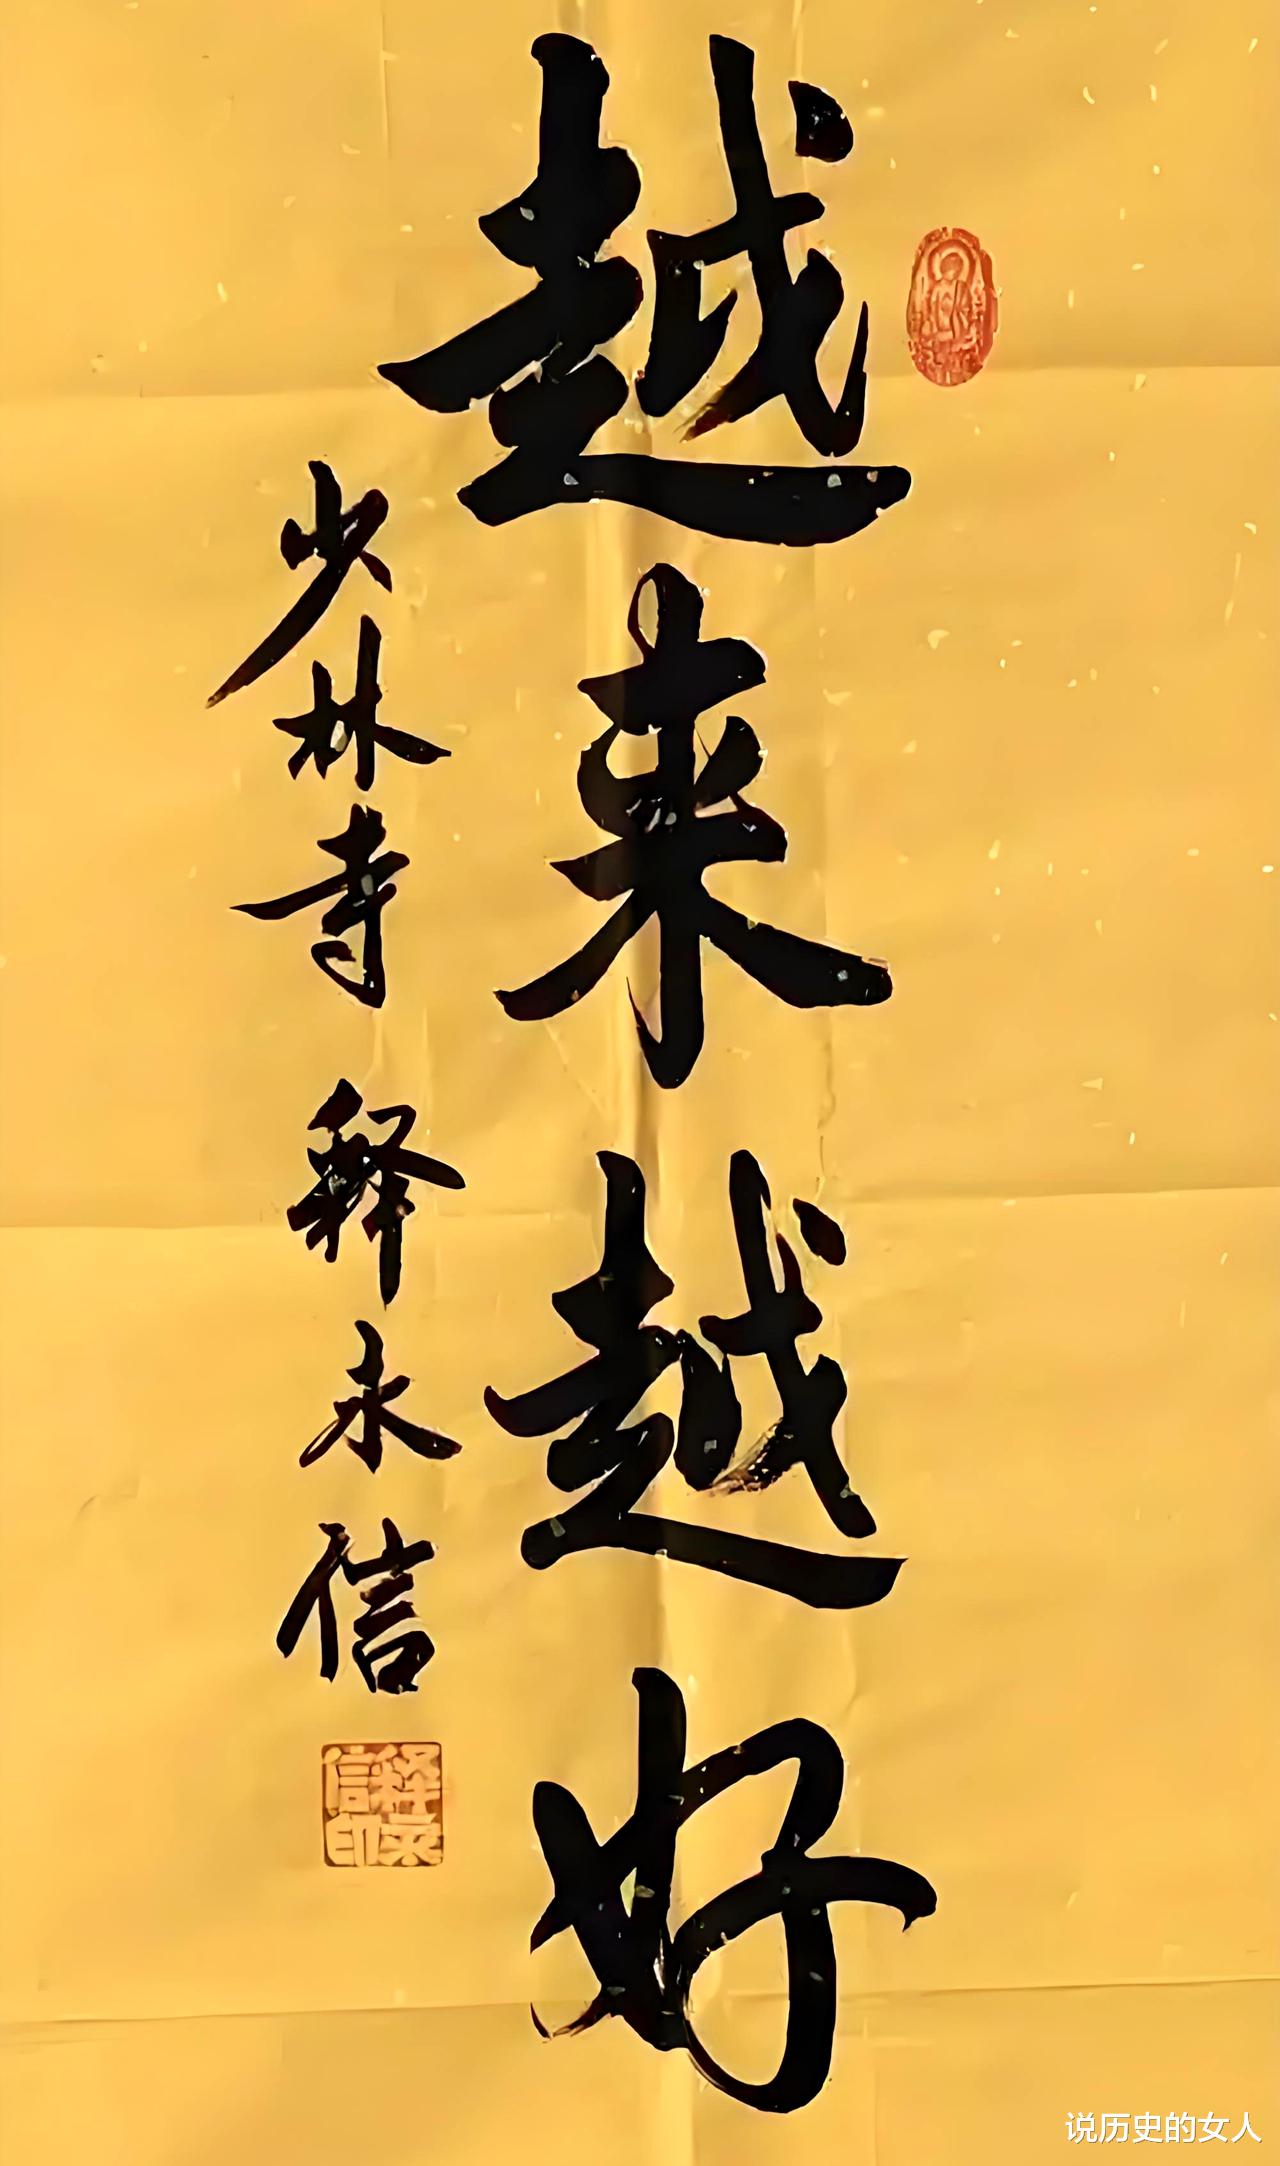 越来越好
少林寺 释永信
释永信印
说历史的女人